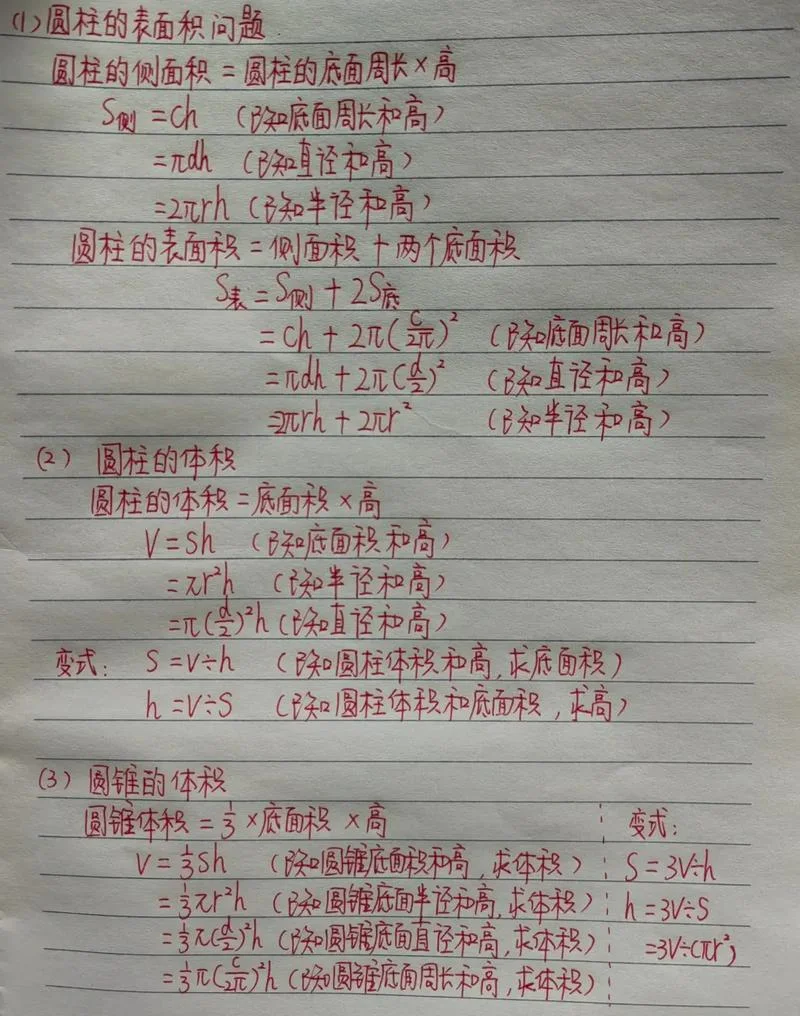 (1) 圆柱的表面积问题
圆柱的侧面积 = 圆柱的底面周长 × 高
S侧 = ch (已知底面周长和高)
= πdh (已知直径和高)
= 2πrh (已知半径和高)
圆柱的表面积 = 侧面积 + 两个底面积
S表 = S侧 + 2S底
= ch + 2π(c/2π)² (已知底面周长和高)
= πdh + 2π(d/2)² (已知直径和高)
= 2πrh + 2πr² (已知半径和高)
(2) 圆柱的体积
圆柱的体积 = 底面积 × 高
V = Sh (已知底面积和高)
= πr²h (已知半径和高)
= π(d/2)²h (已知直径和高)
变式: S = V÷h (已知圆柱体积和高, 求底面积)
h = V÷S (已知圆柱体积和底面积, 求高)
(3) 圆锥的体积
圆锥体积 = 1/3 × 底面积 × 高
V = 1/3Sh (已知圆锥底面积和高, 求体积)
= 1/3πr²h (已知圆锥底面半径和高, 求体积)
= 1/3π(d/2)²h (已知圆锥底面直径和高, 求体积)
= 1/3π(c/2π)²h (已知圆锥底面周长和高, 求体积)
变式:
S = 3V÷h
h = 3V÷S
= 3V÷(πr²)